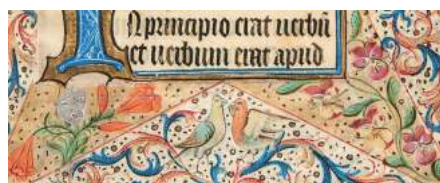 In principio erat uerbū
et uerbum erat apud